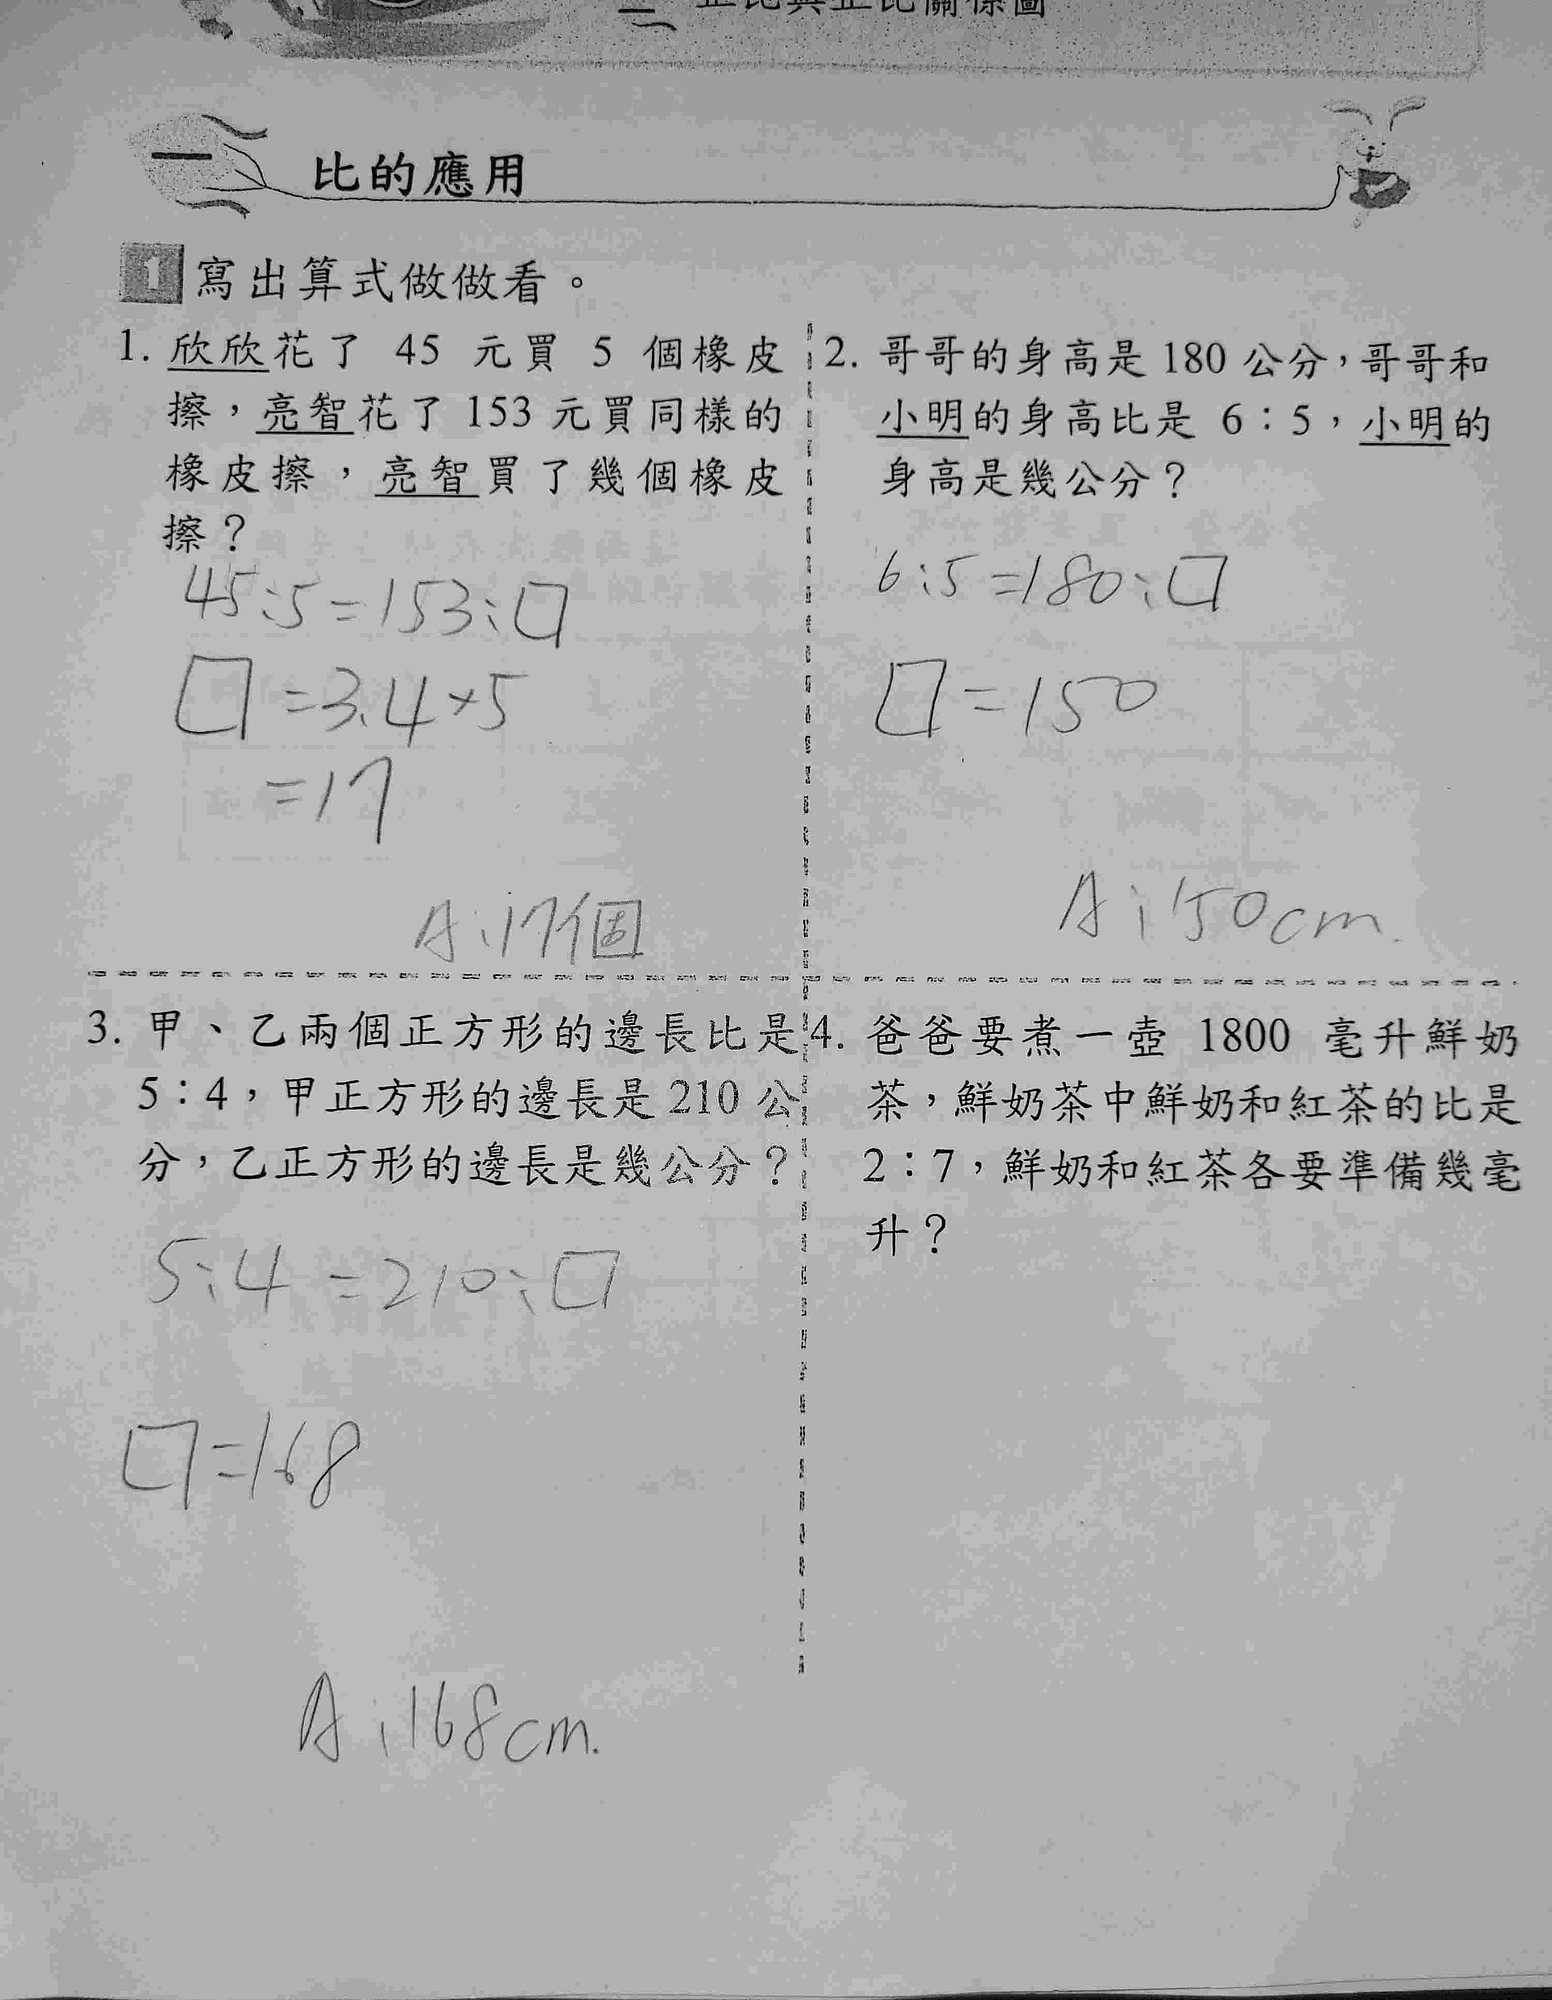 二 正比與正比關係圖
一 比的應用
1 寫出算式做做看。
1. 欣欣花了 45 元買 5 個橡皮
擦，亮智花了 153 元買同樣的
橡皮擦，亮智買了幾個橡皮
擦？
45:5=153:□
□=3.4×5
=17
A:17個
2. 哥哥的身高是 180 公分，哥哥和
小明的身高比是 6：5，小明的
身高是幾公分？
6:5=180:□
□=150
A:150cm.
3. 甲、乙兩個正方形的邊長比是
5：4，甲正方形的邊長是 210 公
分，乙正方形的邊長是幾公分？
5:4=210:□
□=168
A:168cm.
4. 爸爸要煮一壺 1800 毫升鮮奶
茶，鮮奶茶中鮮奶和紅茶的比是
2：7，鮮奶和紅茶各要準備幾毫
升？